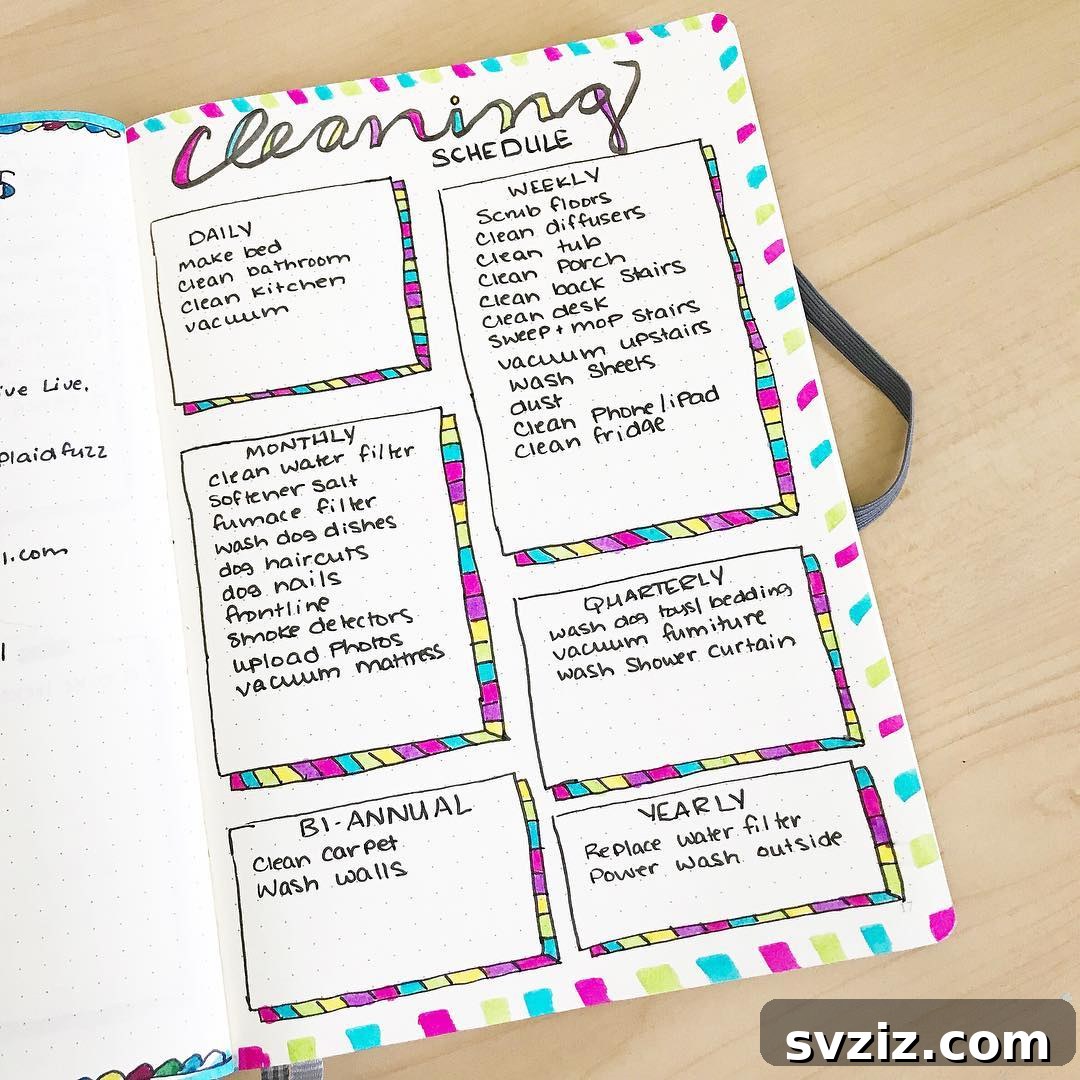 s
ive Live,
plaidfuzz
l.com
l
Cleaning
SCHEDULE
DAILY
make bed
clean bathroom
clean kitchen
vacuum
WEEKLY
Scrub floors
clean diffusers
clean tub
clean porch
clean back stairs
clean desk
sweep + mop stairs
vacuum upstairs
wash sheets
dust
clean phone/ipad
clean fridge
MONTHLY
clean water filter
softener salt
furnace filter
wash dog dishes
dog haircuts
dog nails
frontline
smoke detectors
upload photos
vacuum mattress
QUARTERLY
wash dog toys/bedding
vacuum furniture
wash shower curtain
BI-ANNUAL
Clean carpet
Wash walls
YEARLY
Replace water filter
Power wash outside
svziz.com